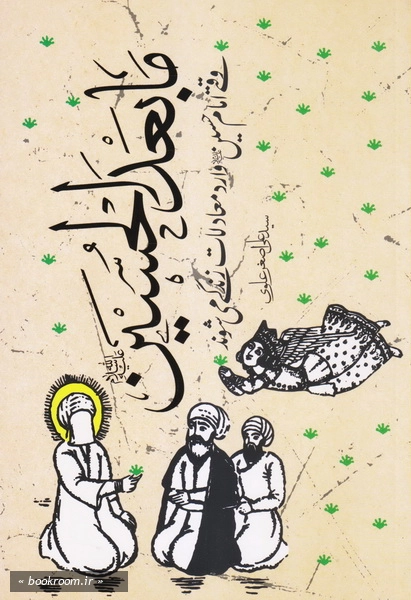 ما بعد الحسین علیه‌السلام
وقتی امام حسین وارد معادلات زندگی می شود
سید علی اصغر علوی
« bookroom.ir »